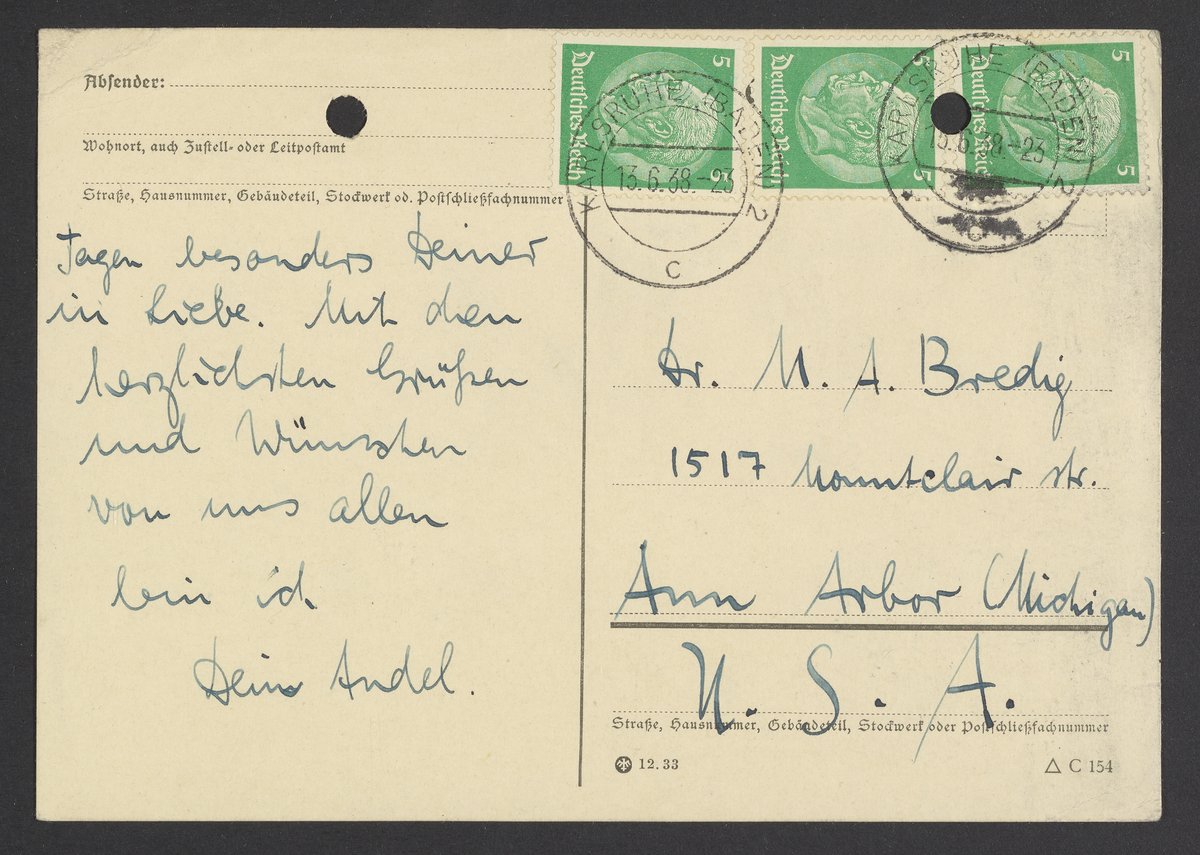 Absender:
Wohnort, auch Zustell- oder Leitpostamt
Straße, Hausnummer, Gebäudeteil, Stockwerk od. Postschließfachnummer
Deutsches Reich 5 5
Deutsches Reich 5 5
Deutsches Reich 5 5
KARLSRUHE (BADEN) 2
13.6.38.-23
c
KARLSRUHE (BADEN) 2
13.6.38.-23
c
Tagen besonders Deiner
in Liebe. Mit den
herzlichsten Grüßen
und Wünschen
von uns allen
bin ich
Dein Andel.
Dr. M. A. Bredig
1517 Mountclair str.
Ann Arbor (Michigan)
U. S. A.
Straße, Hausnummer, Gebäudeteil, Stockwerk oder Postschließfachnummer
12.33
C 154